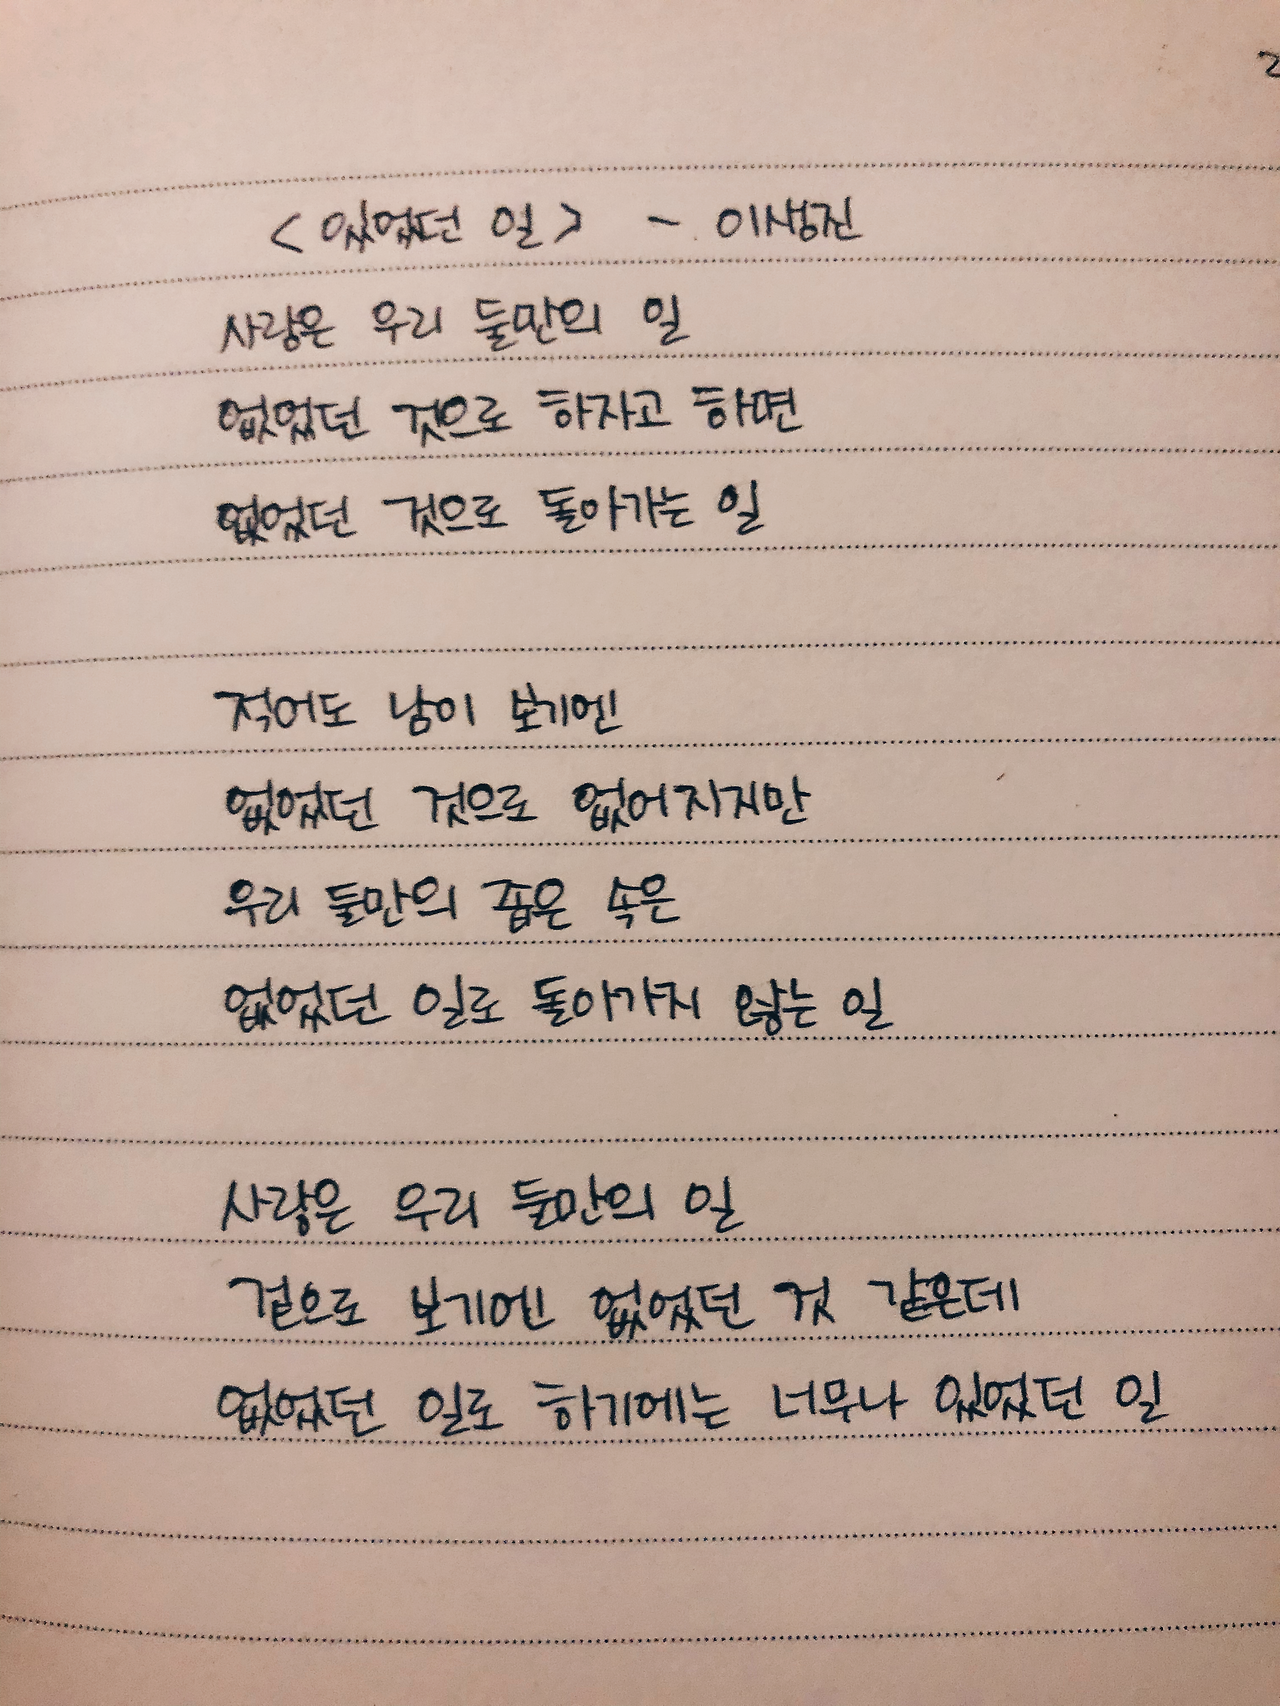 2
<있었던 일> - 이생진
사랑은 우리 둘만의 일
없었던 것으로 하자고 하면
없었던 것으로 돌아가는 일
적어도 남이 보기엔
없었던 것으로 없어지지만
우리 둘만의 좁은 속은
없었던 일로 돌아가지 않는 일
사랑은 우리 둘만의 일
겉으로 보기엔 없었던 것 같은데
없었던 일로 하기에는 너무나 있었던 일